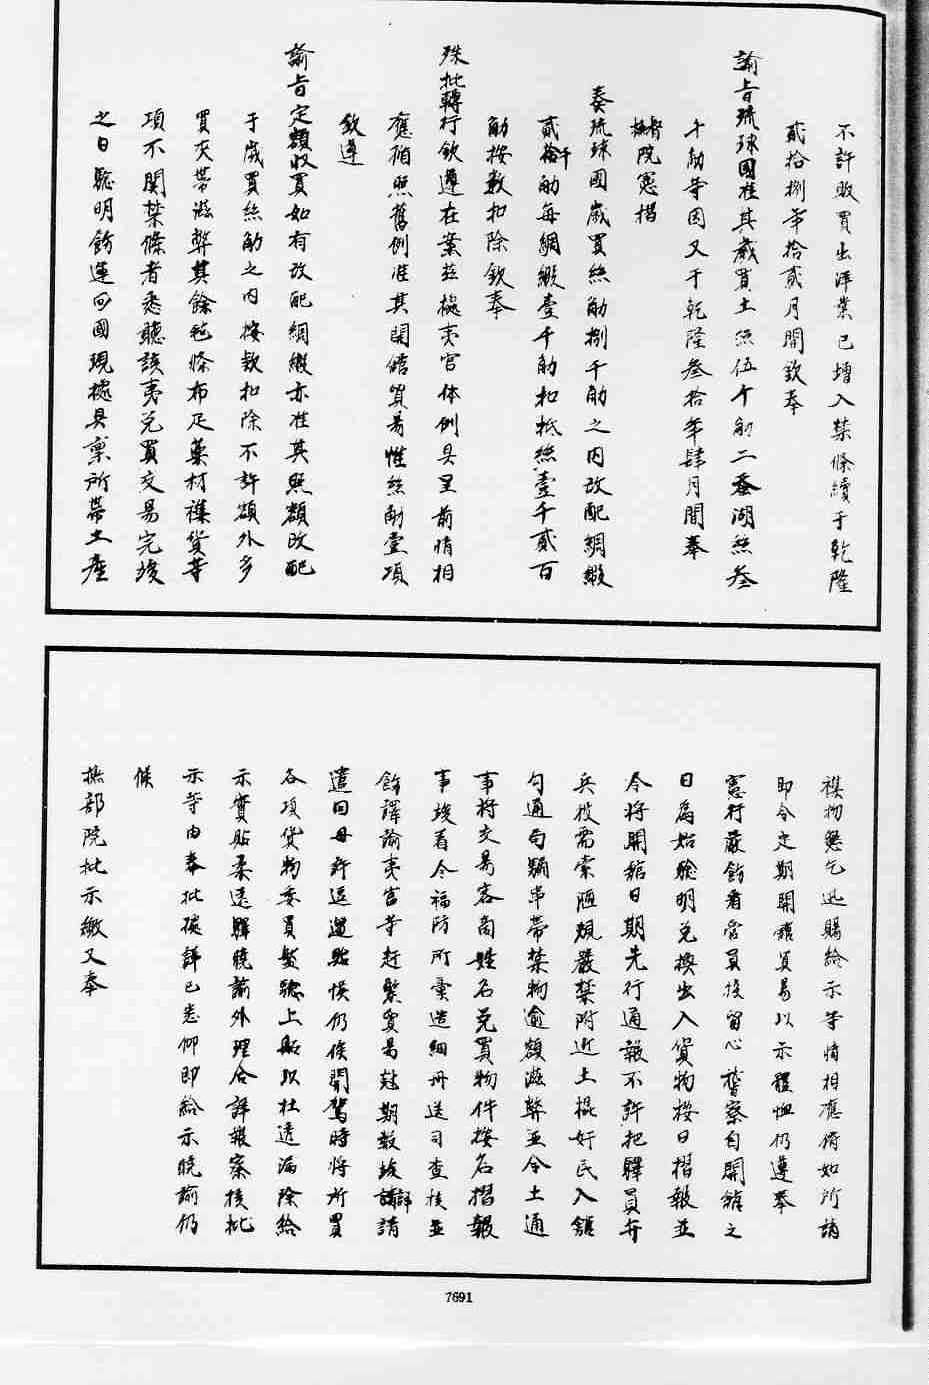 不許販買出洋業已增入禁條續于乾隆
貳拾捌年拾貳月間欽奉
諭旨琉球國准其歲買土絲伍千觔二蚕湖絲叁
千觔等因又于乾隆叁拾年肆月間奉
督撫院憲摺
奏琉球國歲買絲觔捌千觔之内改配綢緞
貳千觔每綢緞壹千觔扣抵絲壹千貳百
觔按數扣除欽奉
硃批轉行欽遵在案茲據夷官体例具呈前情相
應循照舊例准其開舘貿易惟絲觔壹項
欽遵
諭旨定額收買如有改配綢緞亦准其照額改配
于歲買絲觔之内按数扣除不許額外多
買夾帶滋弊其餘毡條布疋藥材襍貨等
項不関禁條者悉聽該夷兌買交易完竣
之日驗明飭運回國現據具稟所帶土產
襍物懇乞迅賜給示等情相應俯如所請
即令定期開舘貿易以示體恤仍遵奉
憲行嚴飭看管員役留心稽察自開舘之
日為始驗明兌換出入貨物按日摺報並
令将開舘日期先行通報不許把驛員弁
兵役需索陋規嚴禁附近土棍奸民入舘
勾通句騙串帶禁物逾額滋弊並令土通
事将交易客商姓名兌買物件按名摺報
事竣着令福防所彙造細冊送司查核並
飭譯諭夷官等赶緊貿易尅期報竣詳請
遣回毋許逗遛貽悞仍候開駕時将所買
各項貨物委員監驗上船以杜透漏除給
示實貼柔遠驛曉諭外理合詳報察核批
示等由奉批據詳已悉仰即給示曉諭仍
候
撫部院批示繳又奉
7691